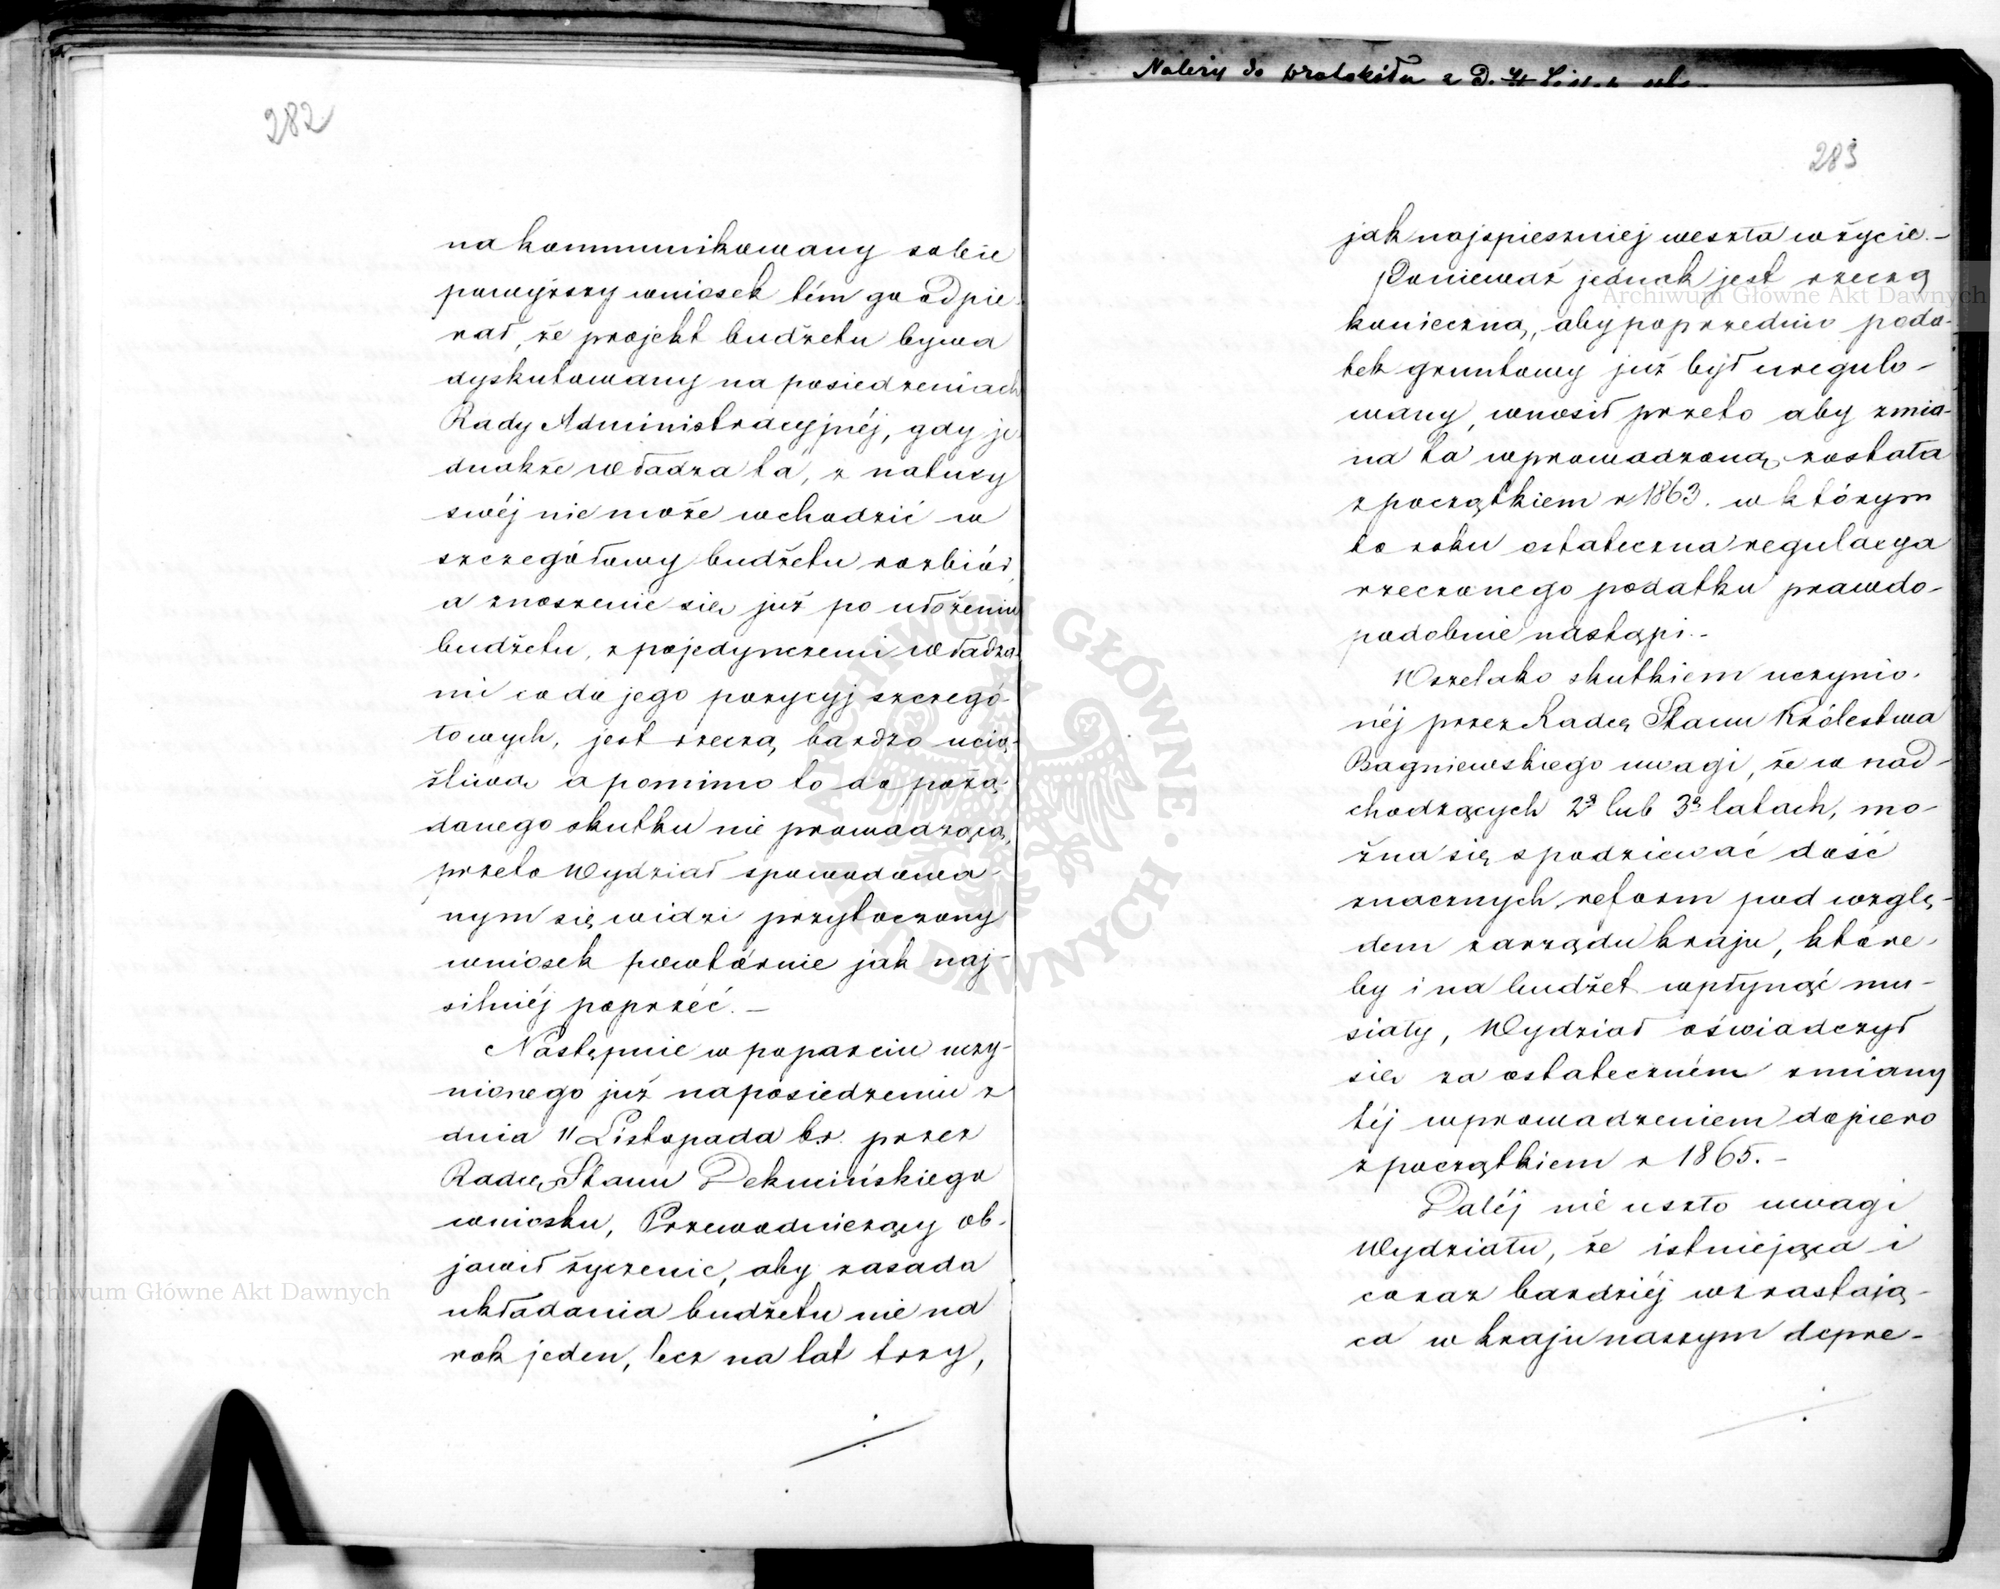 282
na kommunikowany sobie
powyższy wniosek tém go odpie-
rał, że projekt budżetu bywa
dyskutowany na posiedzeniach
Rady Administracyjnéj, gdy je-
dnakże władza ta, z natury
swéj nie może wchodzić w
szczegółowy budżetu rozbiór,
a znoszenie się już po ułożeniu
budżetu, z pojedynczemi władza-
mi co do jego pozycyj szczegó-
łowych, jest rzeczą bardzo ucią-
żliwą a pomimo to do pożą-
danego skutku nie prowadzącą,
przeto Wydział spowodowa-
nym się widzi przytoczony
wniosek powtórnie jak naj-
silniéj poprzéć. —
Następnie w poparciu uczy-
nionego już na posiedzeniu z
dnia 11 Listopada b.r. przez
Radcę Stanu Dekucińskiego
wniosku, Przewodniczący ob-
jawił życzenie, aby zasada
układania budżetu nie na
rok jeden, lecz na lat trzy,
Należy do protokółu z D.
283
jak najspieszniej weszła w życie. —
Ponieważ jednak jest rzeczą
konieczną, aby poprzednio poda-
tek gruntowy już był uregulo-
wany, wnosił przeto aby zmia-
na ta wprowadzoną została
z początkiem r 1863. w którym
to roku ostateczna regulacya
rzeczonego podatku prawdo-
podobnie nastąpi. -
Wszelako skutkiem uczynio-
néj przez Radcę Stanu Królestwa
Bagniewskiego uwagi, że w nad-
chodzących 2ch lub 3ch latach, mo-
żna się spodziewać dość
znacznych reform pod wzglę-
dem zarządu kraju, które-
by i na budżet wpłynąć mu-
siały, Wydział oświadczył
się za ostateczném zmiany
téj wprowadzeniem dopiero
z początkiem r 1865. -
Daléj nie uszło uwagi
Wydziału, że istniejąca i
coraz bardziéj wzrastają-
ca w kraju naszym depre-
Archiwum Główne Akt Dawnych
Archiwum Główne Akt Dawnych
ARCHIWUM GŁÓWNE AKT DAWNYCH